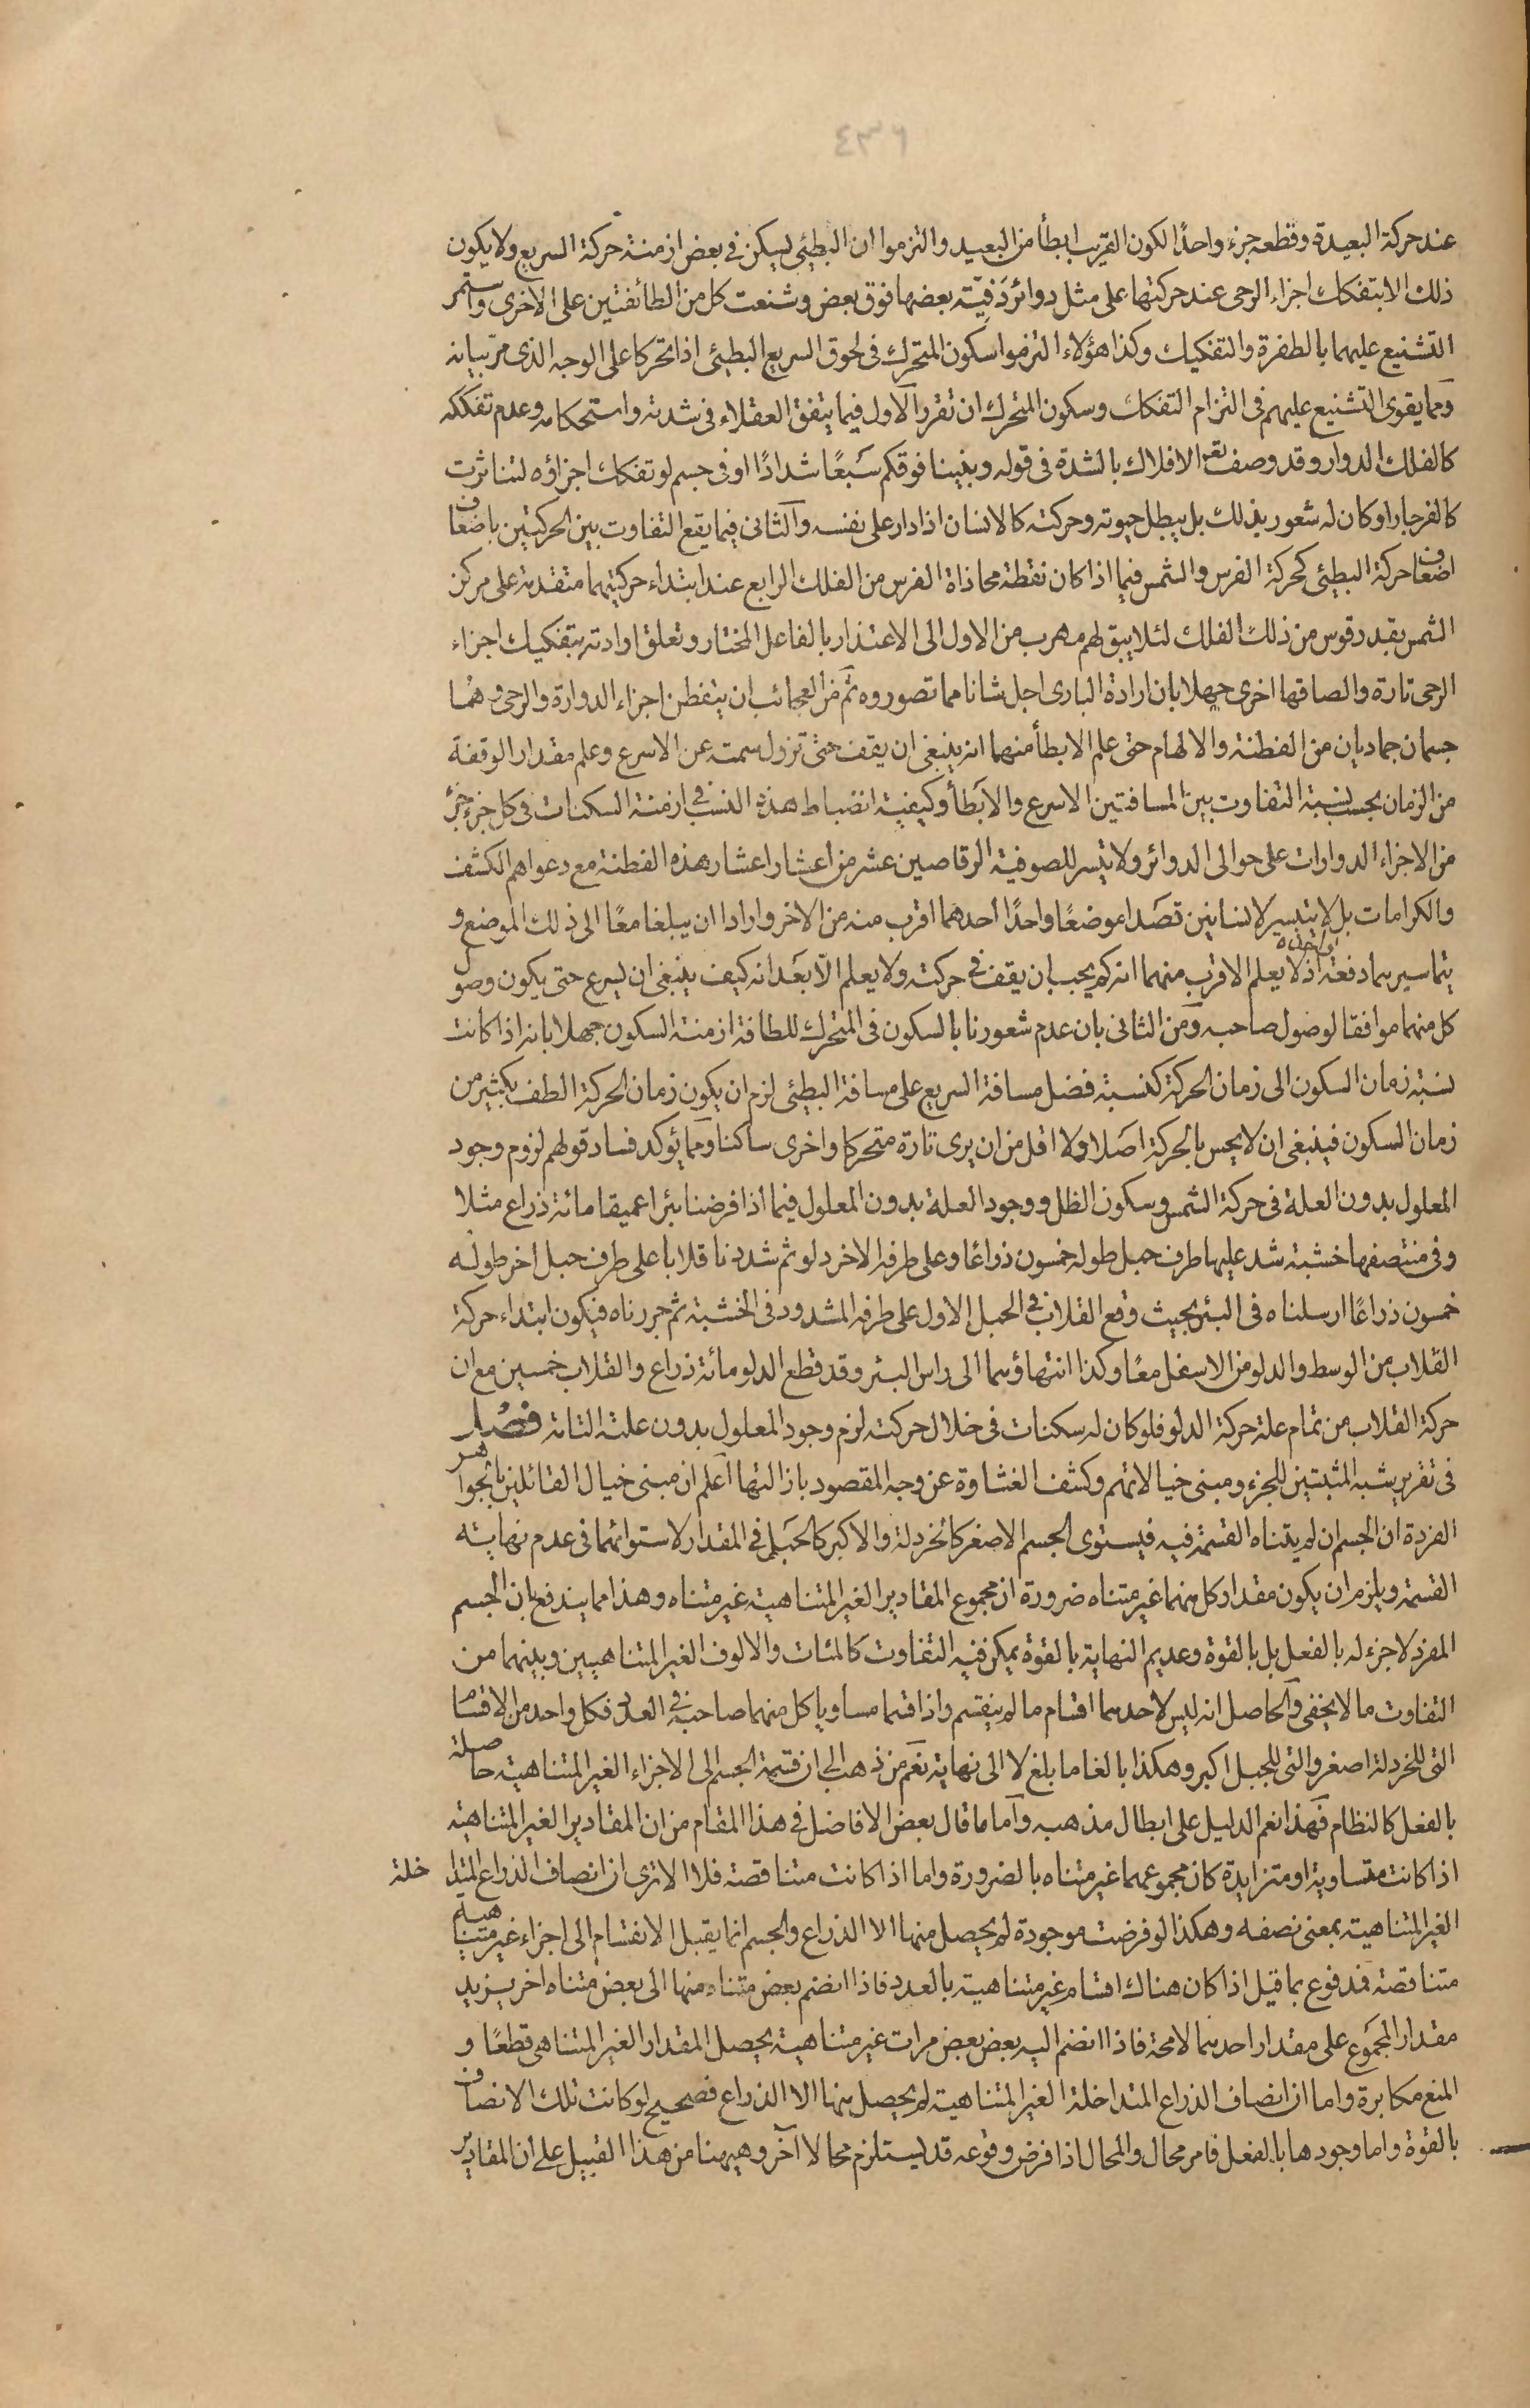 ٤٣٦
عند حركة البعيدة وقطعه جزء واحدًا لكون القريب ابطأ من البعيد والتزموا ان البطيئ يسكن في بعض ازمنة حركة السريع ولا يكون
ذلك الا بتفكك اجزاء الرحى عند حركتها على مثل دوائر دَقيّة بعضها فوق بعض وشنعت كل من الطائفتين على الاخرى واستمر
التشنيع عليهما بالطفرة والتفكيك وكذا هؤلاء التزموا سكون المتحرك في لحوق السريع البطيئ اذا تحركا على الوجه الذى مرّ بيانه
ومما يقوى التشنيع عليهم في التزام التفكك وسكون المتحرك ان تقرر الاول فيما يتفق العقلاء في شدته واستحكامه وعدم تفككه
كالفلك الدوار وقد وصف تعه الافلاك بالشدة في قوله وبنينا فوقكم سَبعًا شدادًا او في جسم لو تفكك اجزاؤه لتناثرت
كالفرجار او كان له شعور بذلك بل يبطل حيوته وحركته كالانسان اذا دار على نفسه والثانى فيما يقع التفاوت بين الحركتين باضعاف
اضعاف حركة البطيئ كحركة الفرس والشمس فيما اذا كان نقطة محاذاة الفرس من الفلك الرابع عند ابتداء حركتيهما متقدمة على مركز
الشمس بقدر قوس من ذلك الفلك لئلا يبق لهم مهرب من الاول الى الاعتذار بالفاعل المختار وتعلق ارادته بتفكيك اجزاء
الرحى تارة والصاقها اخرى جهلا بان ارادة البارى اجل شانا مما تصوروه ثم من العجائب ان يتفطن اجزاء الدوارة والرحى وهُما
جسمان جماديان من الفطنة والالهام حتى علم الابطأ منهما انه ينبغى ان يقف حتى تزول سمته عن الاسرع وعلم مقدار الوقفة
من الزمان بحسب نسبة التفاوت بين المسافتين الاسرع والابطأ وكيفية انضباط هذه النسب في ازمنة السكنات في كل جزء جزء
من الاجزاء الدوارات على حوالى الدوائر ولا يتيسر للصوفية الرقاصين عشر من اعشار اعشار هذه الفطنة مع دعواهم الكشف
والكرامات بل لا يتيسر لانسانين قصَدا موضعًا واحدًا احدهما اقرب منه من الاخر وارادا ان يبلغا معًا الى ذلك الموضع و
يتماسير بهما دفعة اذ لا يعلم الاقرب منهما انه كم يجب ان يقف في حركته ولا يعلم الابعَد انه كيف ينبغى ان يسرع حتى يكون وصول
كل منهما موافقا لوصول صاحبه ومن الثانى بان عدم شعورنا بالسكون في المتحرك للطافة ازمنة السكون جهلا بانه اذا كانت
نسبة زمان السكون الى زمان الحركة كنسبة فضل مسافة السريع على مسافة البطيئ لزم ان يكون زمان الحركة الطف بكثير من
زمان السكون فينبغى ان لا يحس بالحركة اصَلا ولا اقل من ان يرى تارة متحركا واخرى ساكنا ومما يؤكد فساد قولهم لزوم وجود
المعلول بدون العلة في حركة الشمس وسكون الظل ووجود العلة بدون المعلول فيما اذا فرضنا بئرا عميقا مائة ذراع مثلا
وفى منتصفها خشبة شد عليها طرف حبل طوله خمسون ذراعًا وعلى طرفه الاخر دلو ثم شددنا قلابا على طرف حبل اخر طوله
خمسون ذراعًا ارسلناه في البئر بحيث وقع القلاب في الحبل الاول على طرفه المشدود في الخشبة ثم جررناه فيكون ابتداء حركة
القلاب من الوسط والدلو من الاسفل معًا وكذا انتهاؤهما الى راس البئر وقد قطع الدلو مائة ذراع والقلاب خمسين مع ان
حركة القلاب من تمام علة حركة الدلو فلو كان له سكنات في خلال حركته لزم وجود المعلول بدون علته التامة فصْل
في تقرير شبه المثبتين للجزء ومبنى خيالاتهم وكشف الغشاوة عن وجه المقصود بازالتها اعلم ان مبنى خيال القائلين بالجواهر
الفردة ان الجسم ان لم يتناه القسمة فيه فيستوى الجسم الاصغر كالخردلة والاكبر كالجَبل في المقدار لاستوائهما في عدم نهاية
القسمة ويلزم ان يكون مقدار كل منهما غير متناه ضرورة ان مجموع المقادير الغير المتناهية غير متناه وهذا مما يندفع بان الجسم
المفرد لا جزء له بالفعل بل بالقوة وعديم النهاية بالقوة يمكن فيه التفاوت كالمئات والالوف الغير المتناهيين وبينهما من
التفاوت ما لا يخفى والحاصل انه ليس لاحدهما اقسام ما لم ينقسم واذا قسما مساويا كل منهما صاحبه في العدد فكل واحد من الاقسام
التى للخردلة اصغر والتى للجبل اكبر وهكذا بالغا ما بلغ لا الى نهاية نعم من ذهب الى ان قسمة الجسم الى الاجزاء الغير المتناهية حاصلة
بالفعل كالنظام فهذا نعم الدليل على ابطال مذهبه واما ما قال بعض الافاضل في هذا المقام من ان المقادير الغير المتناهية
اذا كانت متساوية او متزايدة كان مجموعهما غير متناه بالضرورة واما اذا كانت متناقصة فلا الا ترى ان انصاف الذراع المتداخلة
الغير المتناهية بمعنى نصفه وهكذا لو فرضت موجودة لم يحصل منها الا الذراع والجسم انما يقبل الانقسام الى اجزاء غير متناهية
متناقصة فمدفوع بما قيل اذا كان هناك اقسام غير متناهية بالعدد فاذا انضم بعض متناه منها الى بعض متناه اخر يزيد
مقدار المجموع على مقدار احدهما لا محة فاذا انضم اليه بعض بعض مرات غير متناهية يحصل المقدار الغير المتناهى قطعًا و
المنع مكابرة واما ان انصاف الذراع المتداخلة الغير المتناهية لم يحصل منها الا الذراع فصحيح لو كانت تلك الانصاف
بالقوة واما وجودها بالفعل فامر محال والمحال اذا فرض وقوعه قد يستلزم محالا آخر وهيهنا من هذا القبيل على ان المقادير